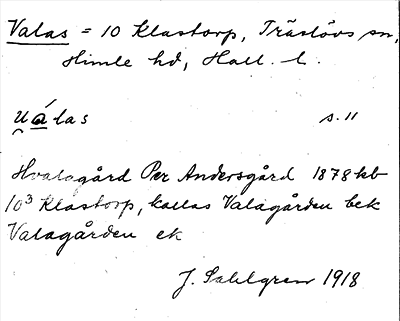 Valas = 10 Klastorp, Träslövs sn,
Himle hd, Hall. l.
u̯álas s. 11
Hvalagård Per Andersgård 1878 kb
10³ Klastorp, kallas Valagården bek
Valagården ek
J. Sahlgren 1918